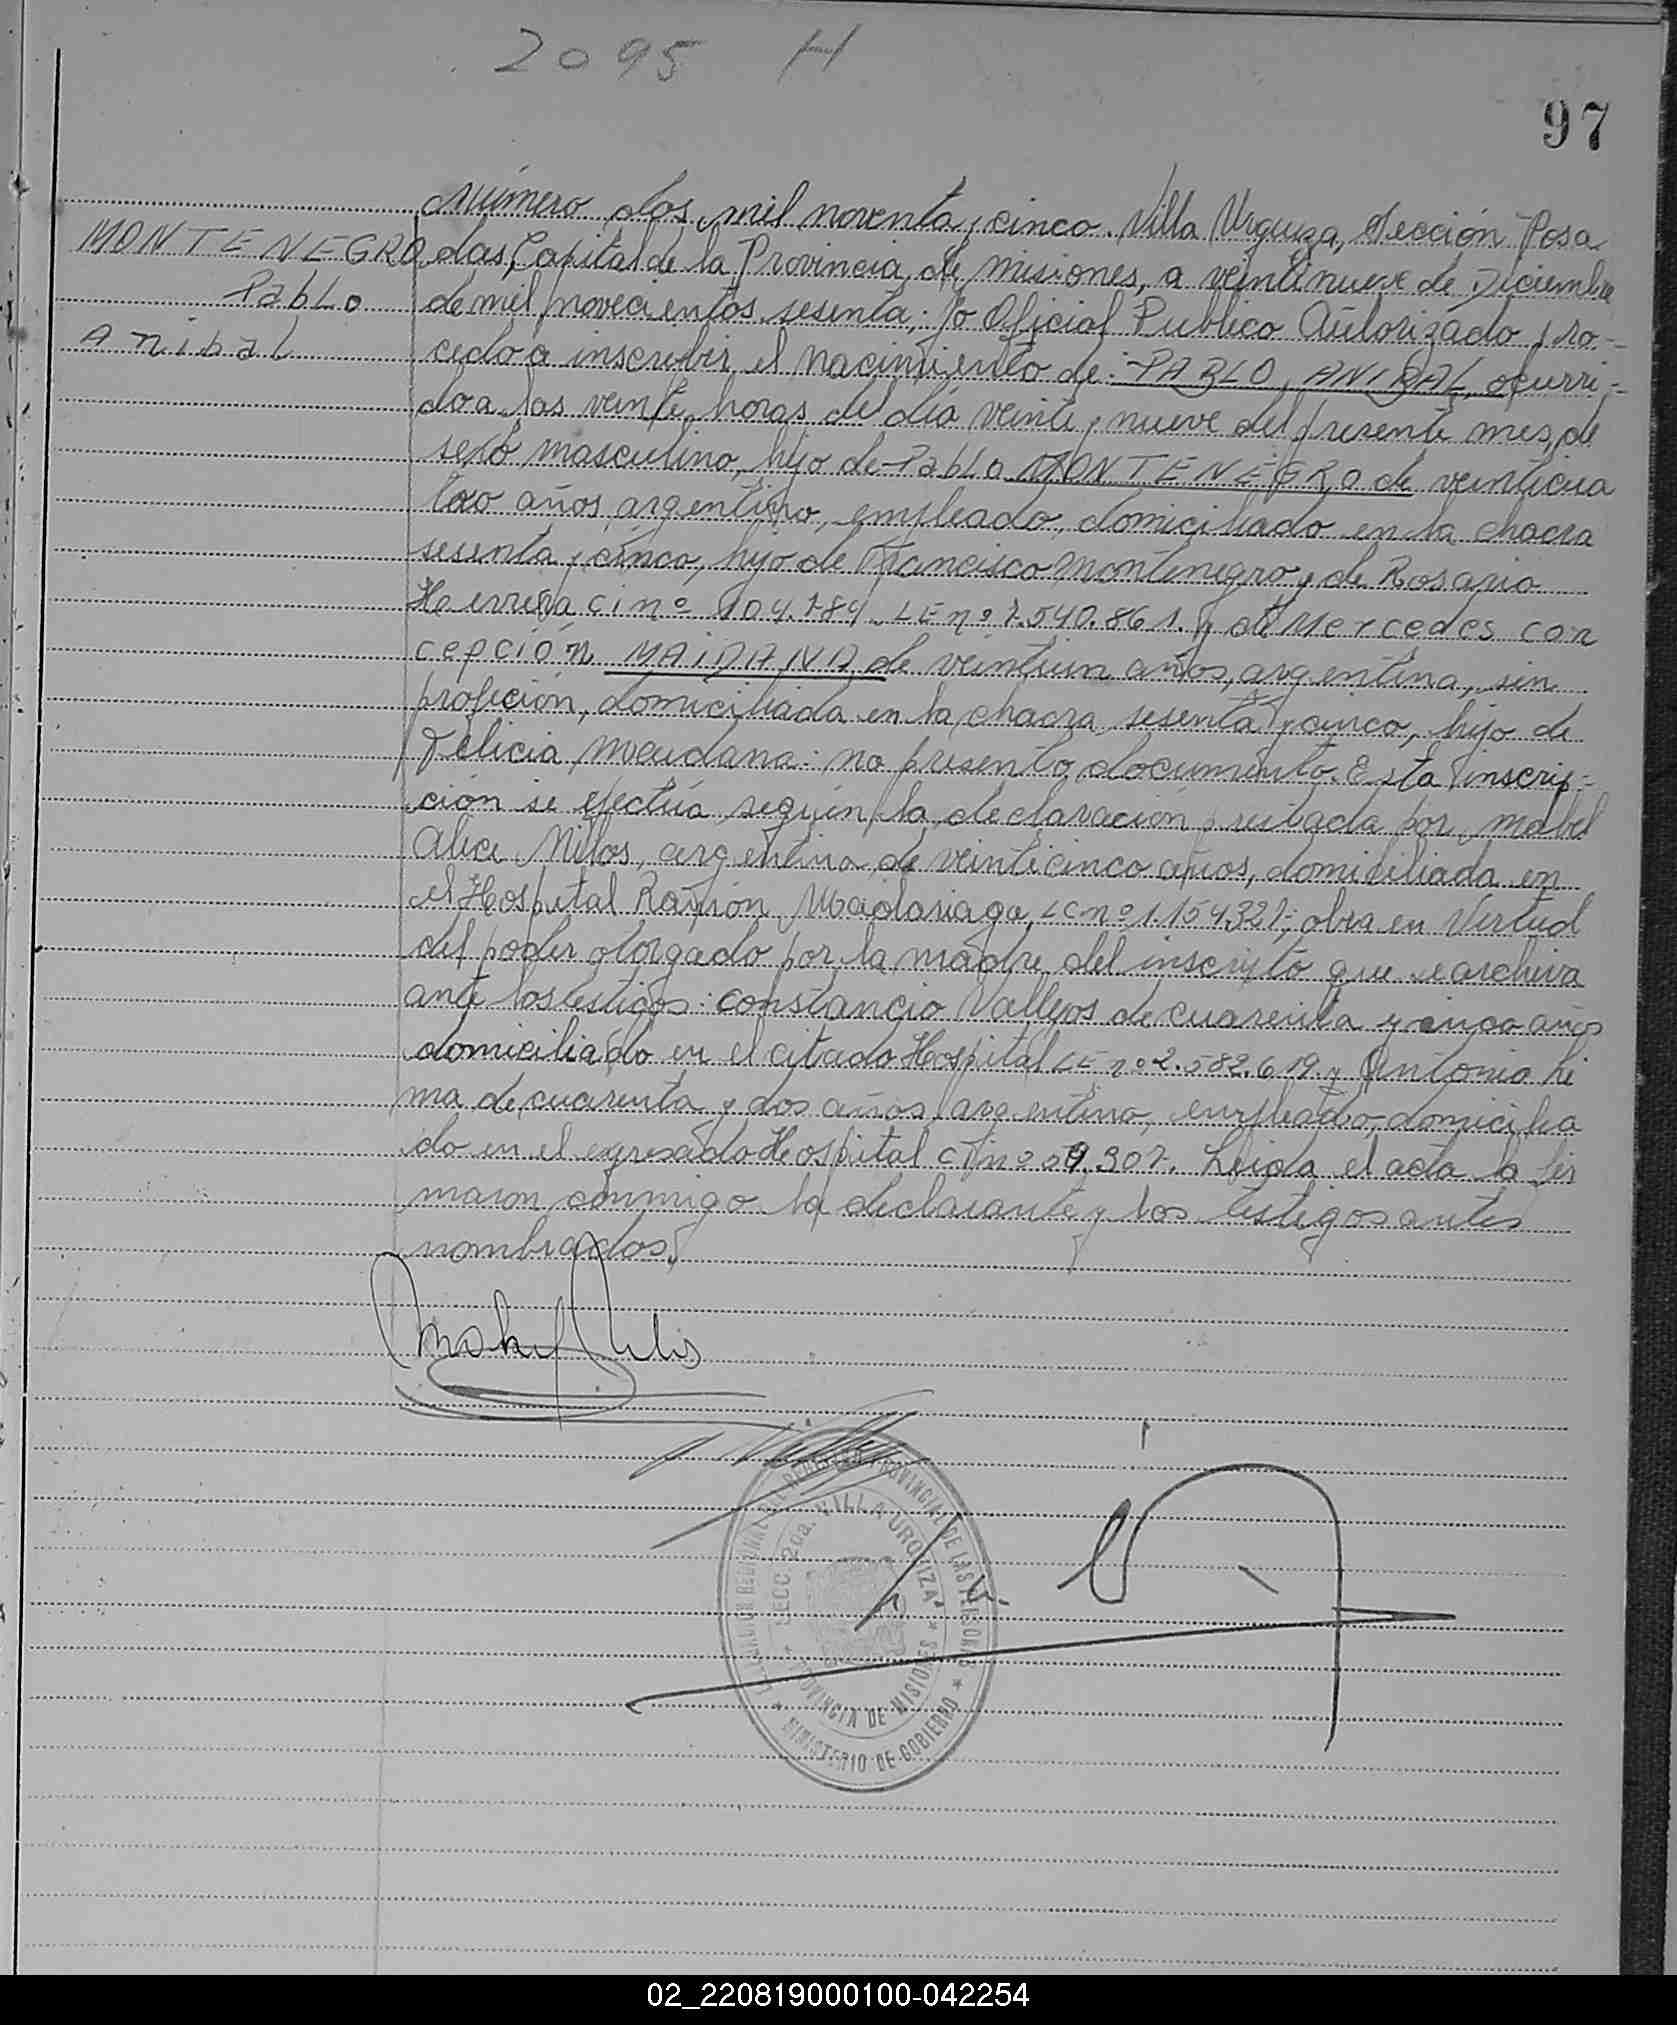 2095 H
97
MONTENEGRO
PabLo
Anibal
Número dos mil noventa y cinco. Villa Urquiza, Sección Posa
das, Capital de la Provincia de misiones, a veintinueve de Diciembre
de mil novecientos sesenta; Yo Oficial Público Autorizado pro-
cedo a inscribir el nacimiento de: PABLO, ANIBAL, ocurri-
do a las veinte horas del día veinte y nueve del presente mes, de
sexo masculino, hijo de PabLo MONTENEGRO de veinticua
tro años, argentino, empleado, domiciliado en la chacra
sesenta y cinco, hijo de Francisco Montenegro y de Rosario
Herrera ci nº 104.784. LE nº 7.540.861. y de Mercedes con
cepción MAIDANA de veintiun años, argentina, sin
profeción, domiciliada en la chacra sesenta y cinco, hijo de
Felicia Meidana: no presento documento. Esta inscrip-
ción se efectúa según la declaración prestada por mabel
Alice Milos, argentina de veinticinco años, domiciliada en
el Hospital Ramón Madariaga, LC nº 1.154.327; obra en Vertud
del poder otorgado por la madre del inscripto que se archiva
ante los testigos: constancio Vallejos de cuarenta y cinco años
domiciliado en el citado Hospital LE nº 2.582.619. y Antonio Li
ma de cuarenta y dos años, argentino, empleado, domicilia
do en el expresado Hospital ci nº 59.307. Leida el acta la fir
maron conmigo la declarante y los testigos antes
nombrados.
DELEGACION REGIONAL DEL REGISTRO PROVINCIAL DE LAS PERSONAS
SECC 2da. VILLA URQUIZA
* PROVINCIA DE MISIONES *
* MINISTERIO DE GOBIERNO *
02_220819000100-042254